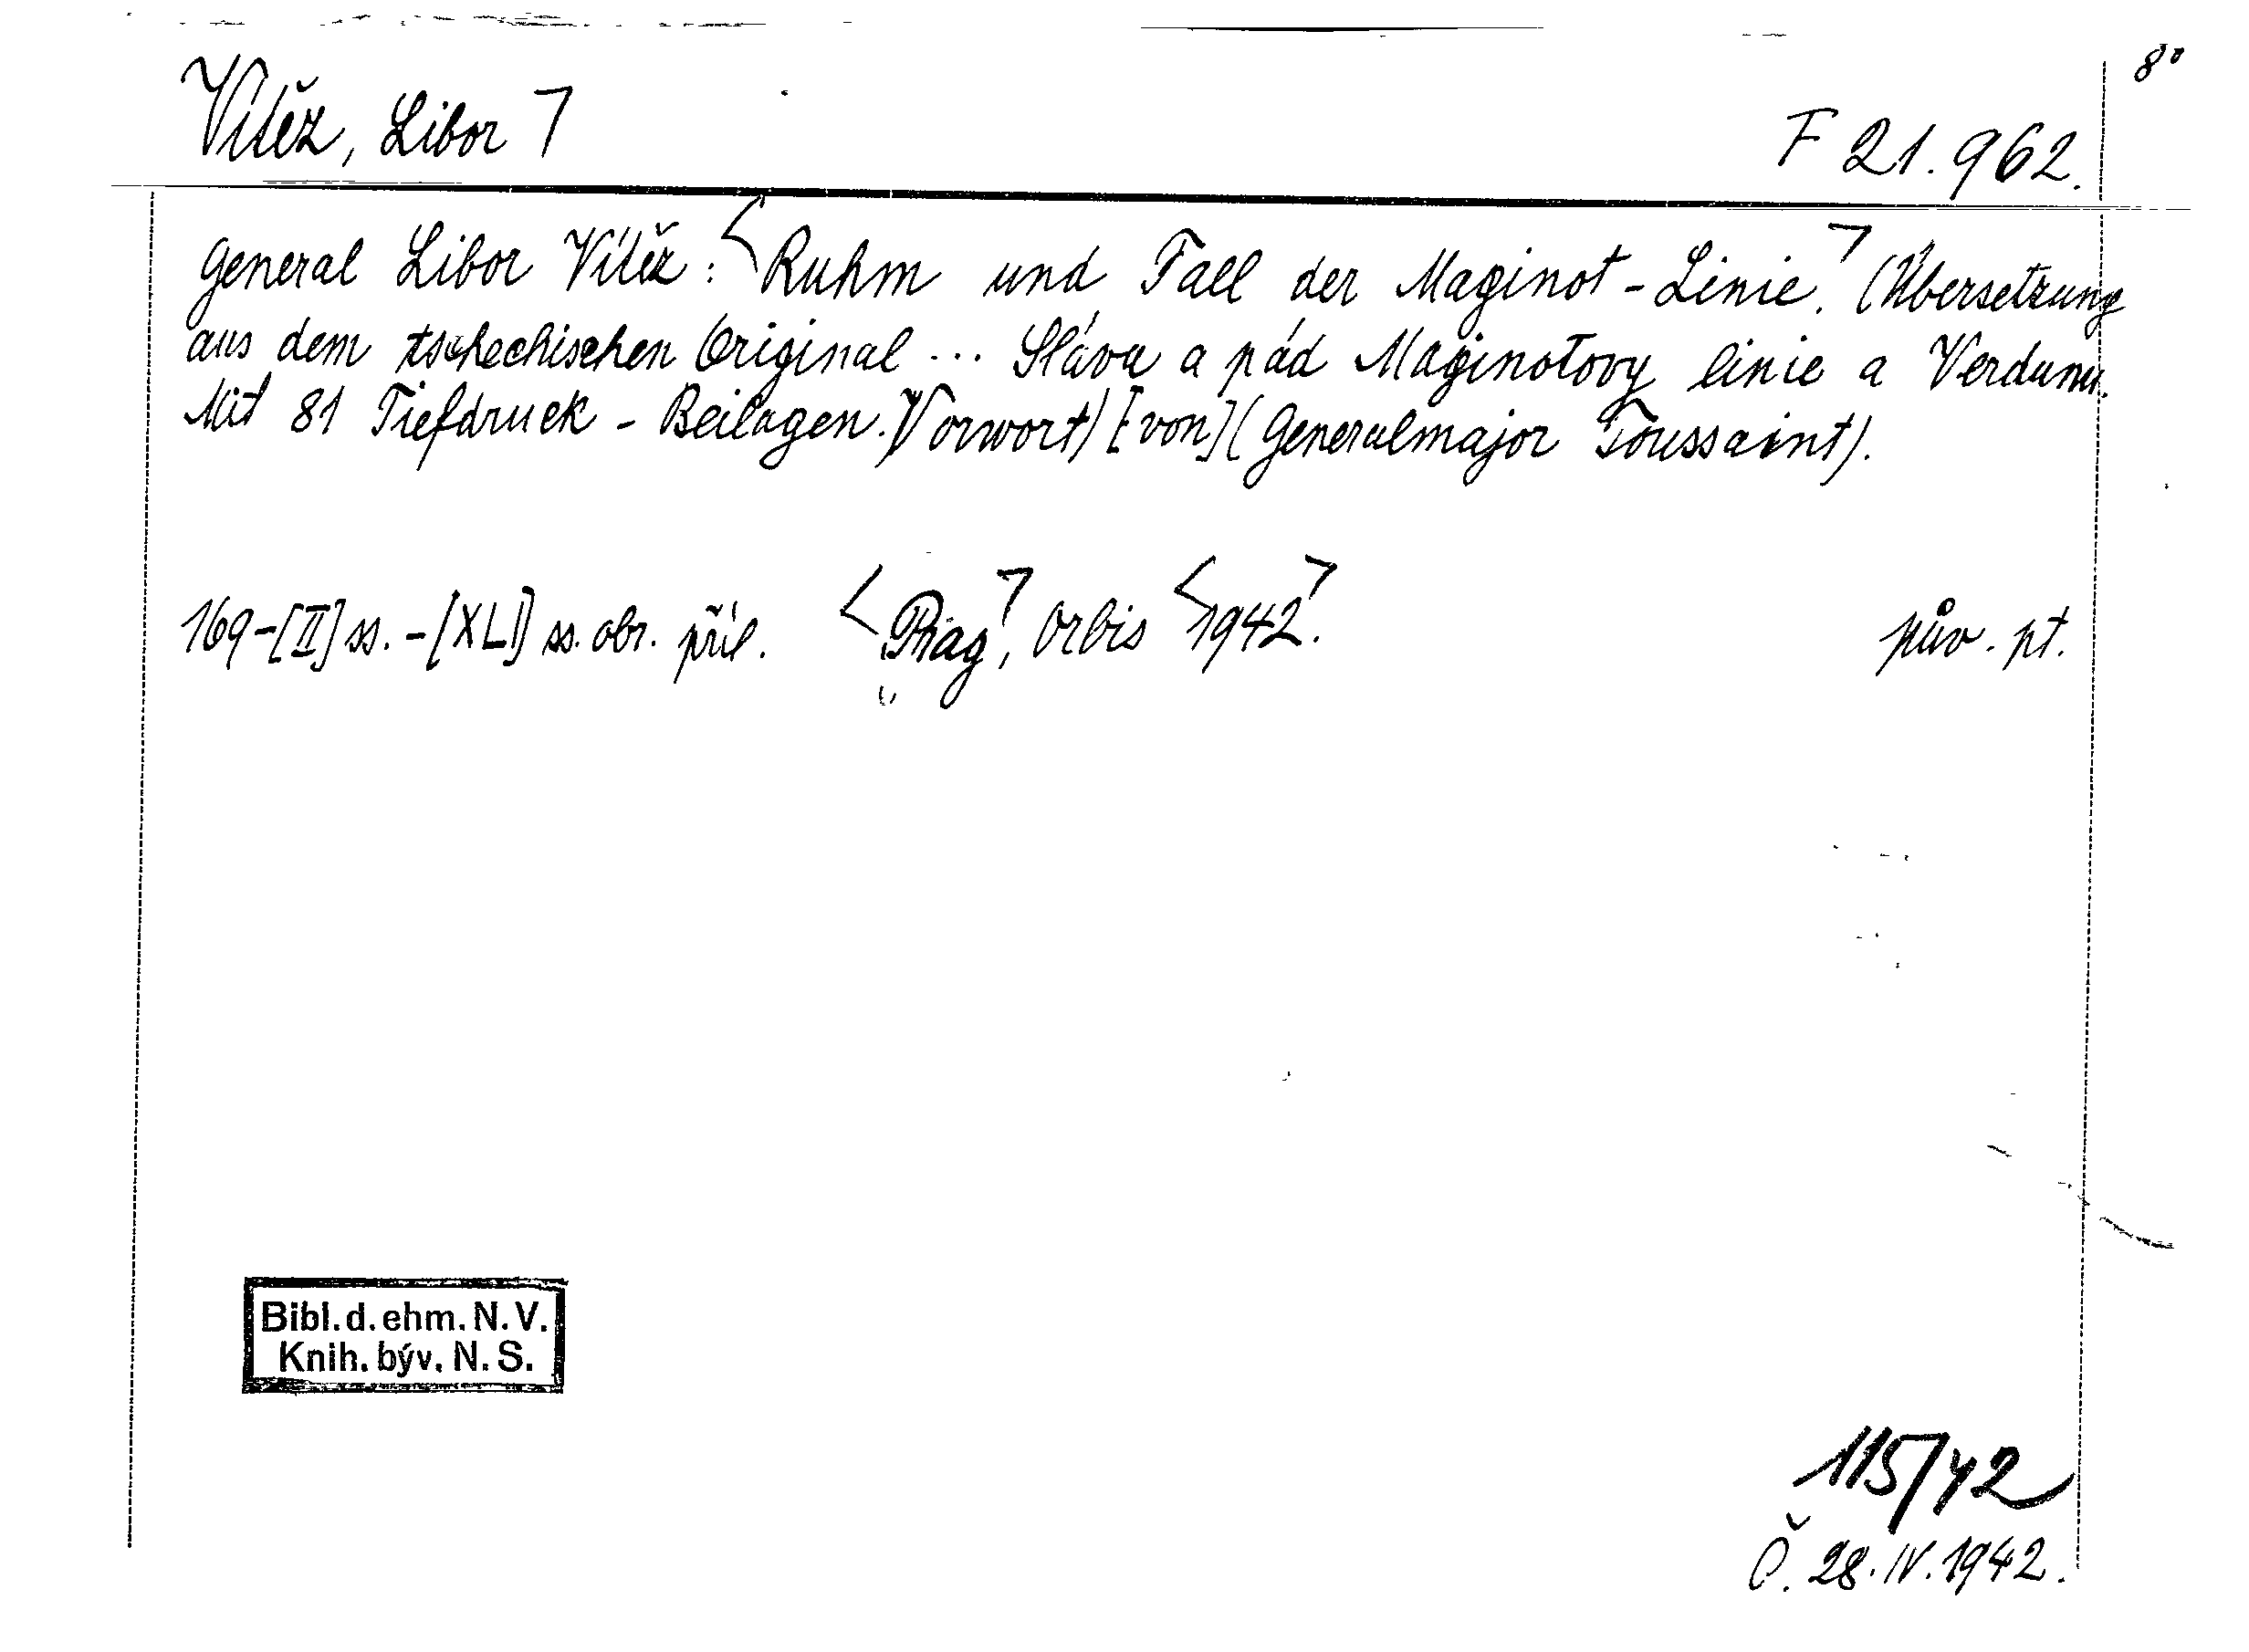 8°
Vítěz, Libor ┐
F 21.962.
General Libor Vítěz: <Ruhm und Fall der Maginot-Linie.┐ (Übersetzung
aus dem tschechischen Original ... Sláva a pád Maginotovy linie a Verdunu.
Mit 81 Tiefdruck-Beilagen. Vorwort) [von] (Generalmajor Toussaint).
169-[II] ss. -[XLI] ss. obr. příl. <Prag┐, Orbis <1942┐. pův. pt.
Bibl. d. ehm. N. V.
Knih. býv. N. S.
115/42
Č. 28.IV.1942.